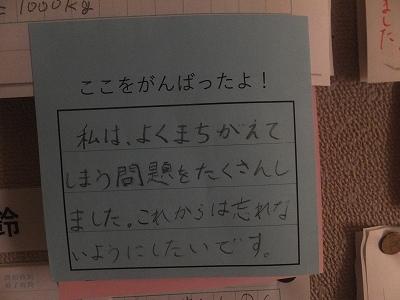 1000kg
ました。
ここをがんばったよ！
私は、よくまちがえて
しまう問題をたくさんし
ました。これからは忘れな
いようにしたいです。
鈴